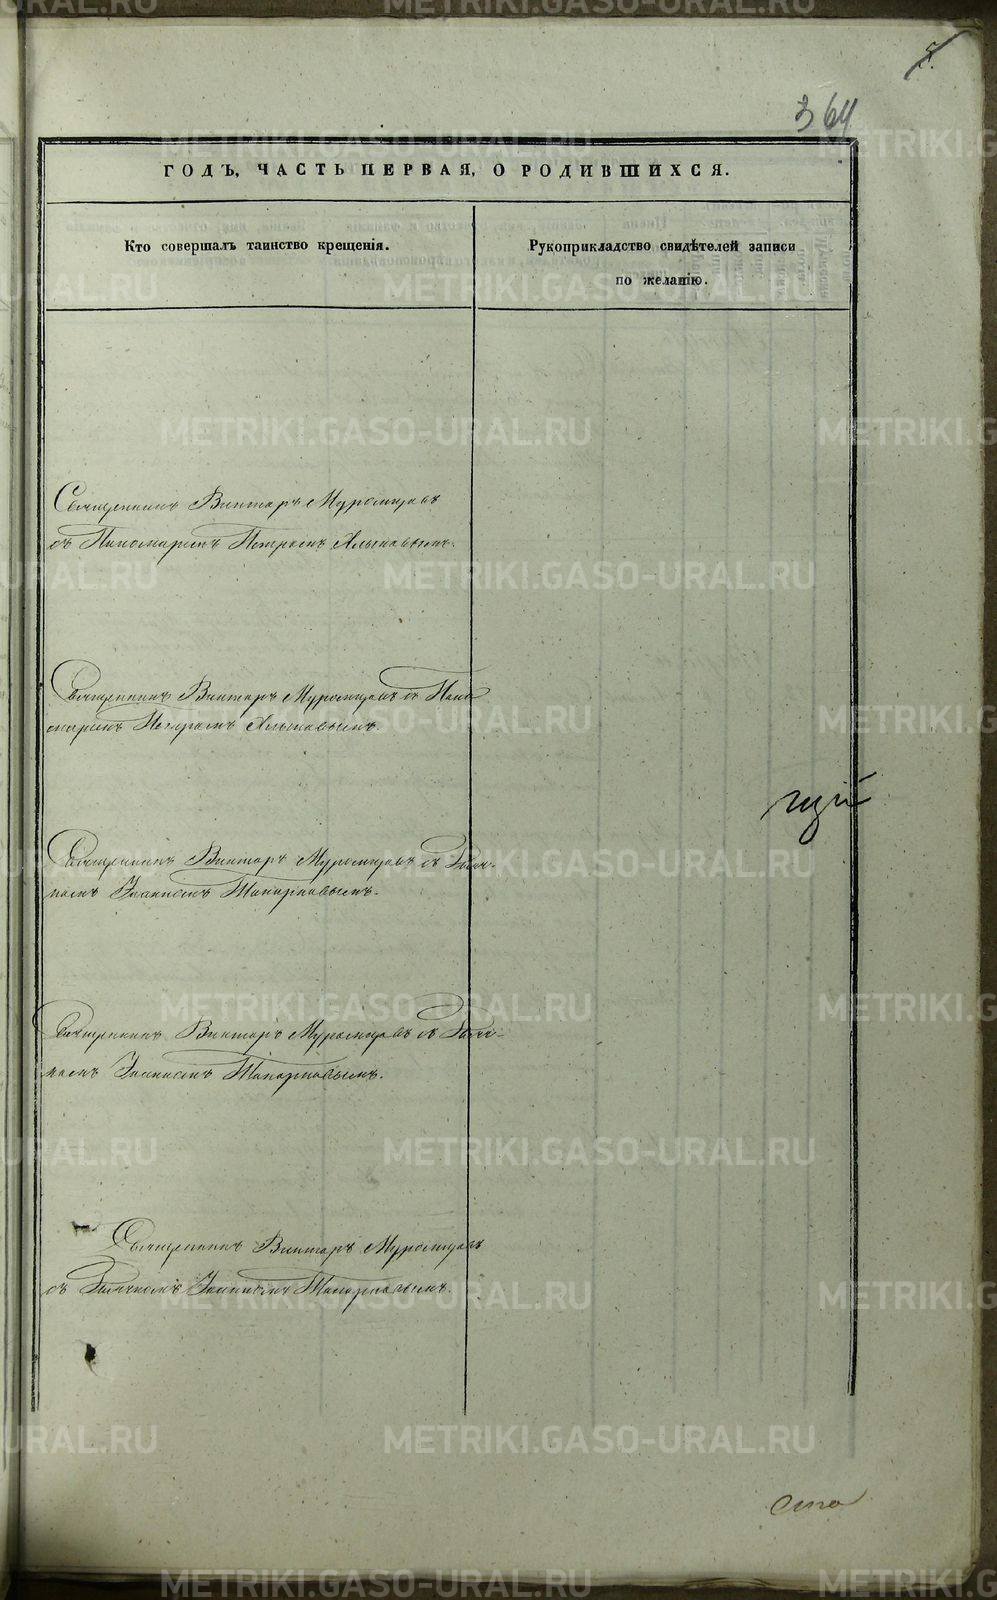 5.
364
ГОДЪ, ЧАСТЬ ПЕРВАЯ, О РОДИВШИХСЯ.
Кто совершалъ таинство крещенія.
Рукоприкладство свидѣтелей записи
по желанію.
Священникъ Викторъ Муромцовъ
съ Пономаремъ Петромъ Хлыновымъ.
Священникъ Викторъ Муромцовъ съ Поно
маремъ Петромъ Хлыновымъ.
Священникъ Викторъ Муромцовъ съ Дьяч-
комъ Іоанномъ Топорковымъ.
Священникъ Викторъ Муромцовъ съ Дьяч-
комъ Іоанномъ Топорковымъ.
Священникъ Викторъ Муромцовъ
съ Дьячкомъ Іоанномъ Топорковымъ.
METRIKI.GASO-URAL.RU